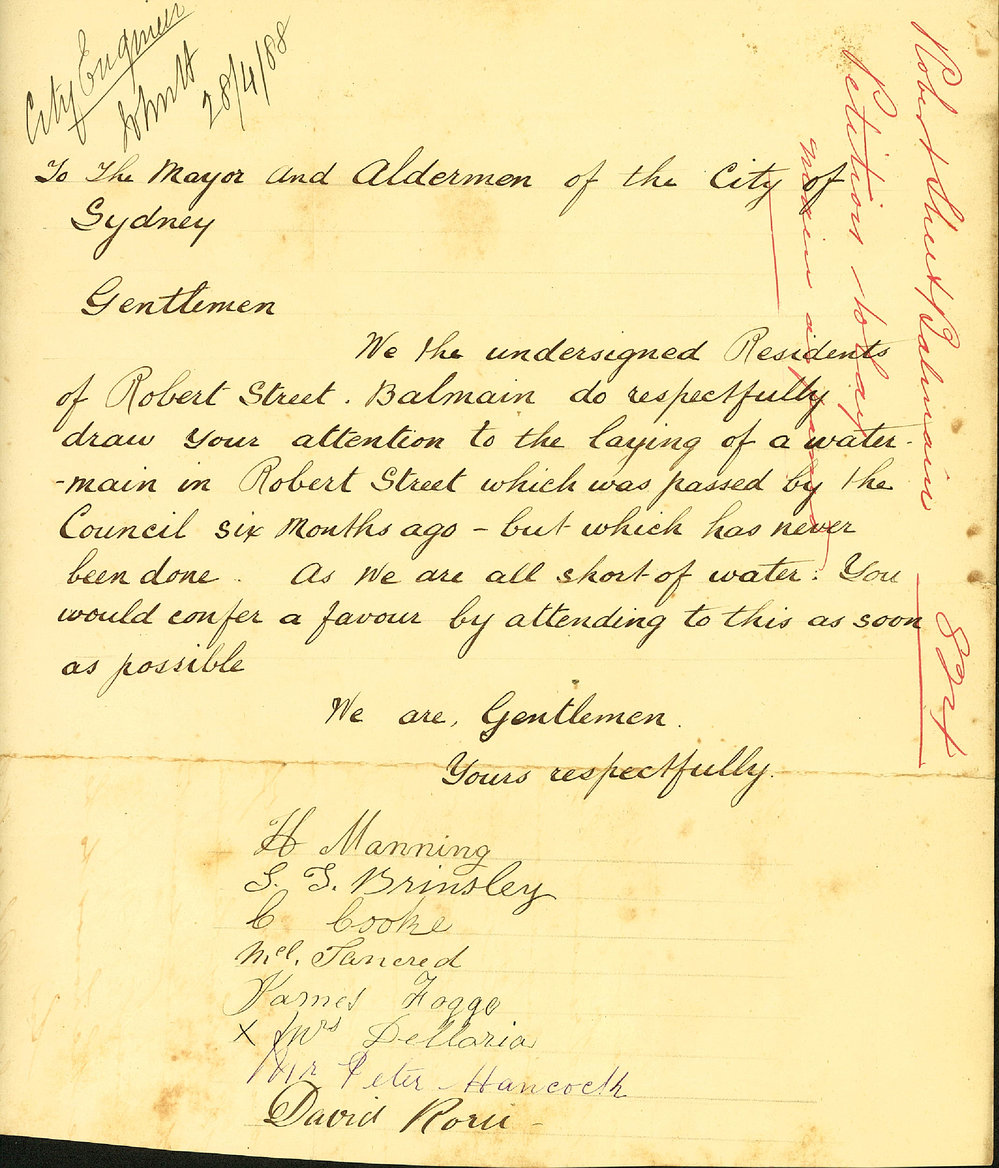 City Engineer
28/4/88
To The Mayor and Aldermen of the City of
Sydney
Gentlemen
We the undersigned Residents
of Robert Street. Balmain do respectfully
draw your attention to the laying of a water-
-main in Robert Street which was passed by the
Council six months ago - but which has never
been done. As we are all short of water. You
would confer a favour by attending to this as soon
as possible
We are, Gentlemen.
Yours respectfully.
H Manning
S. J. Brinsley
C Cooke
Tancred
James Foggo
x Mrs Dellaria
Mr Peter Hancock
David
Robert Street Balmain
Petition to lay
main